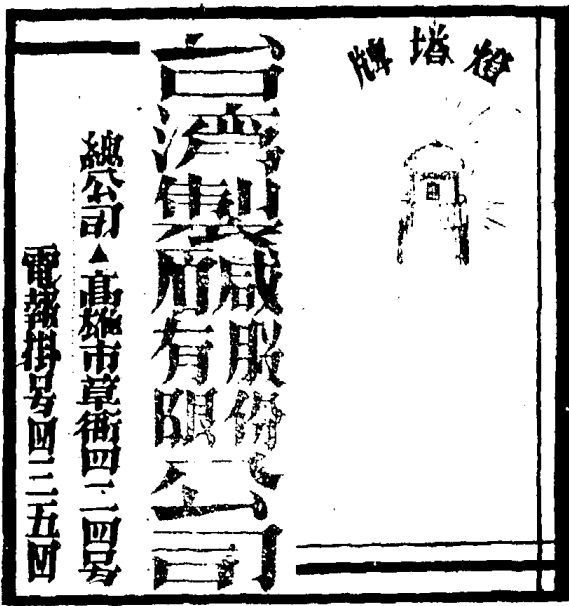 燈塔牌
台灣製鹹股份有限公司
總公司▲高雄市草衙
電報掛号四三五四